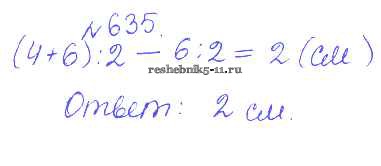 №635.
(4+6):2 - 6:2 = 2 (см)
reshebnik5-11.ru
Ответ: 2 см.